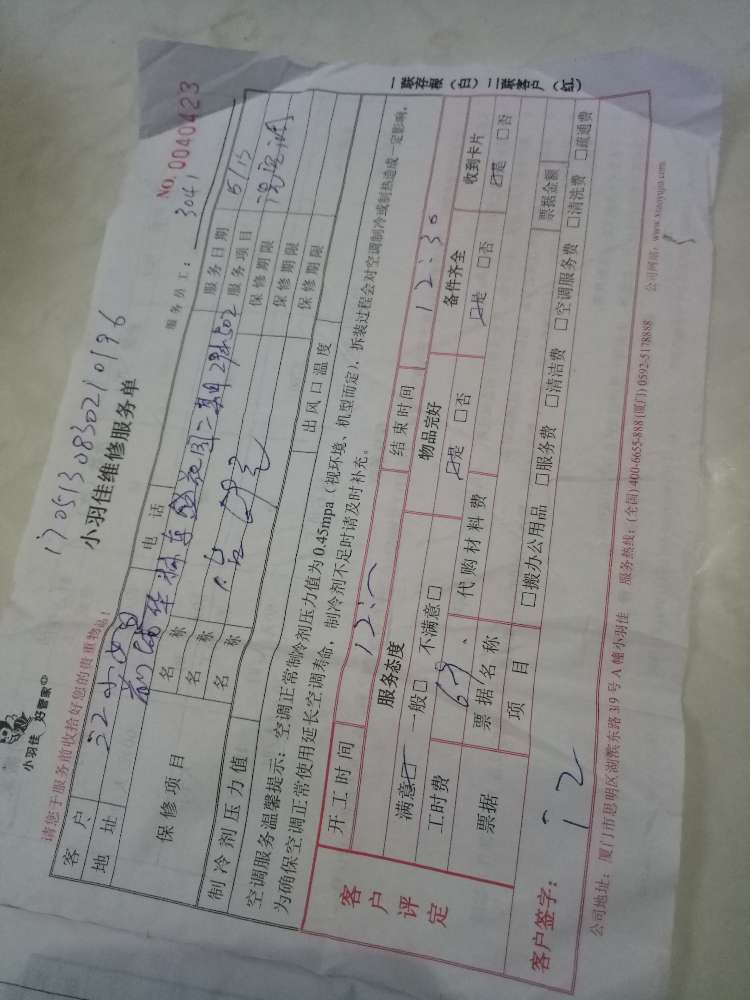 一联存根（白）二联客户（红）
小羽佳 好管家
1705130830210196
小羽佳维修服务单
NO. 0040423
请您于服务前收拾好您的贵重物品！
服务员工： 3041
客户 江小姐 电话 服务日期 5/13
地址 服务项目
保修项目 名称 保修期限
名称 保修期限
名称 保修期限
制冷剂压力值 出风口温度
空调服务温馨提示：空调正常制冷剂压力值为0.45mpa（视环境、机型而定），拆装过程会对空调制冷或制热造成一定影响，
为确保空调正常使用延长空调寿命，制冷剂不足时请及时补充。
客户评定
开工时间 结束时间 12:30
服务态度 物品完好 备件齐全 收到卡片
满意☑ 一般□ 不满意□ ☑是 □否 ☑是 □否 ☑是 □否
工时费 69. 代购材料费
票据 票据名称 票据金额
项目 □搬办公用品 □服务费 □清洁费 □空调服务费 □清洗费 □疏通费
客户签字： 江
公司地址：厦门市思明区湖滨东路319号A幢小羽佳 服务热线：(全国)400-6655-888(厦门)0592-5178888 公司网站：www.xiaoyujia.com